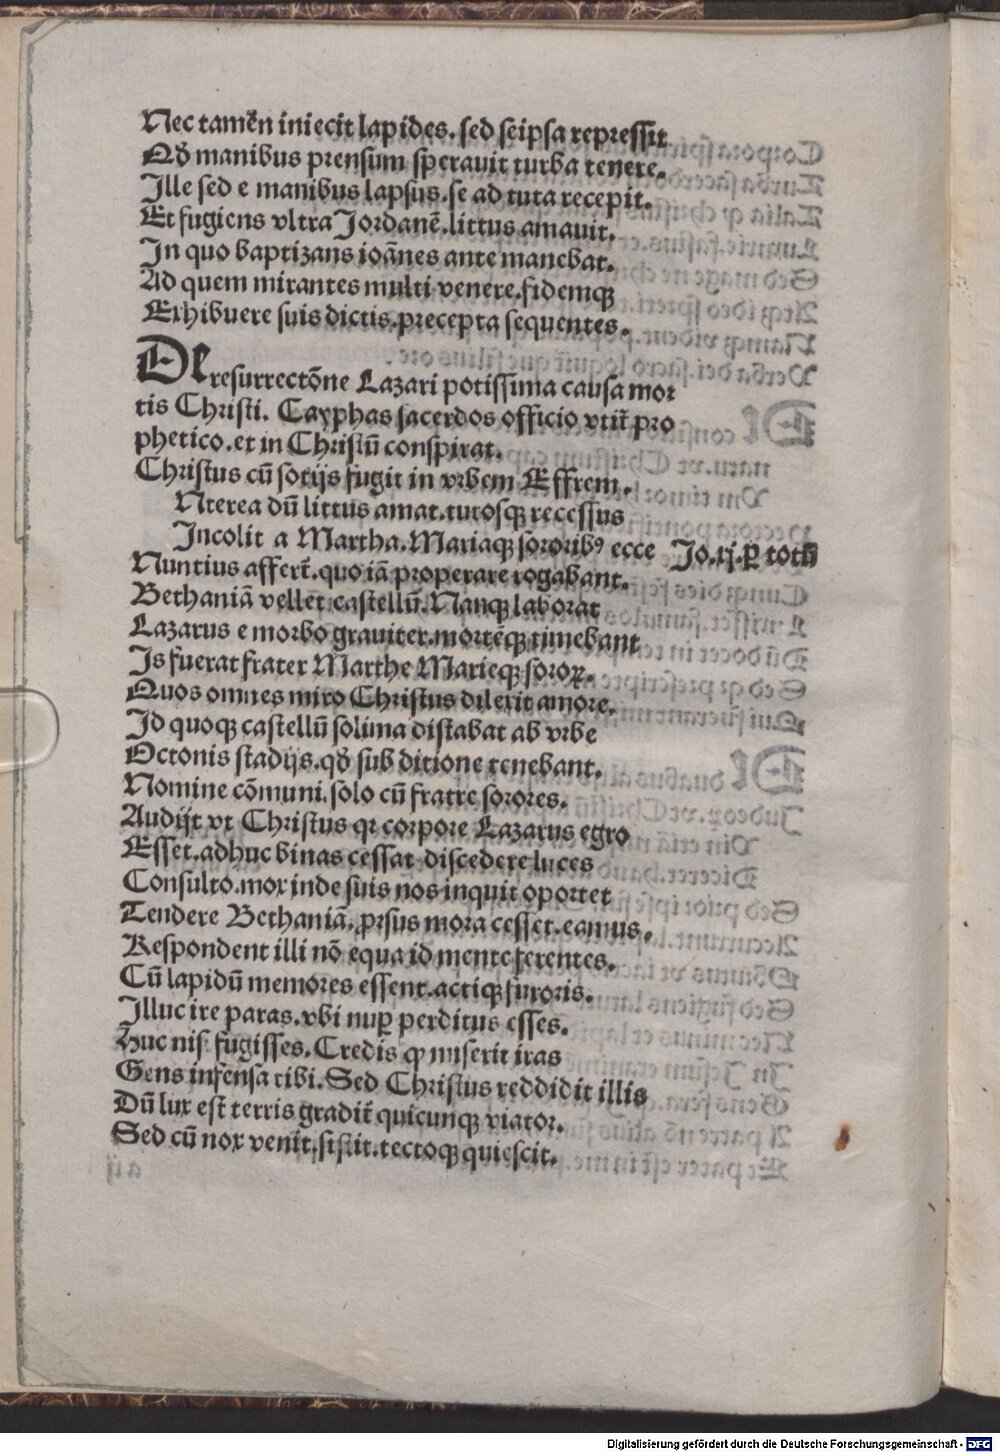 Nec tamẽn iniecit lapides. sed seipsa repressit
Qđ manibus prensum sperauit turba tenere.
Ille sed e manibus lapsus. se ad tuta recepit.
Et fugiens vltra Jordanẽ. littus amauit.
In quo baptizans ioãnes ante manebat.
Ad quem mirantes multi venere. fidemqꝫ
Exhibuere suis dictis. precepta sequentes.
De resurrectõne Lazari potissima causa mor
tis Christi. Cayphas sacerdos officio vtit᷑ pro
phetico. et in Christũ conspirat.
Christus cũ socijs fugit in vrbem Effrem.
Nterea dũ littus amat. tutosqꝫ recessus
Incolit a Martha. Mariaqꝫ sororibꝰ ecce Jo. xj. ꝑ totũ
Nuntius affert᷑. quo iã properare rogabant.
Bethaniã vellet castellũ. Nanqꝫ laborat
Lazarus e morbo grauiter. mortẽqꝫ timebant
Is fuerat frater Marthe Marieqꝫ soroꝝ.
Quos omnes miro Christus dilexit amore.
Id quoqꝫ castellũ solima distabat ab vrbe
Octonis stadijs. qđ sub ditione tenebant.
Nomine cõmuni. solo cũ fratre sorores.
Audijt vt Christus qꝛ corpore Lazarus egro
Esset. adhuc binas cessat discedere luces
Consulto. mox inde suis nos inquit oportet
Tendere Bethaniã. prsus mora cesset. eamus.
Respondent illi nõ equa id mente ferentes.
Cũ lapidũ memores essent. actiqꝫ furoris.
Illuc ire paras. vbi nuꝑ perditus esses.
Huc nisi fugisses. Credis ꝙ miserit iras
Gens infensa tibi. Sed Christus reddidit illis
Dũ lux est terris gradit᷑ quicunqꝫ viator.
Sed cũ nox venit. sistit. tectoqꝫ quiescit.
Digitalisierung gefördert durch die Deutsche Forschungsgemeinschaft - DFG